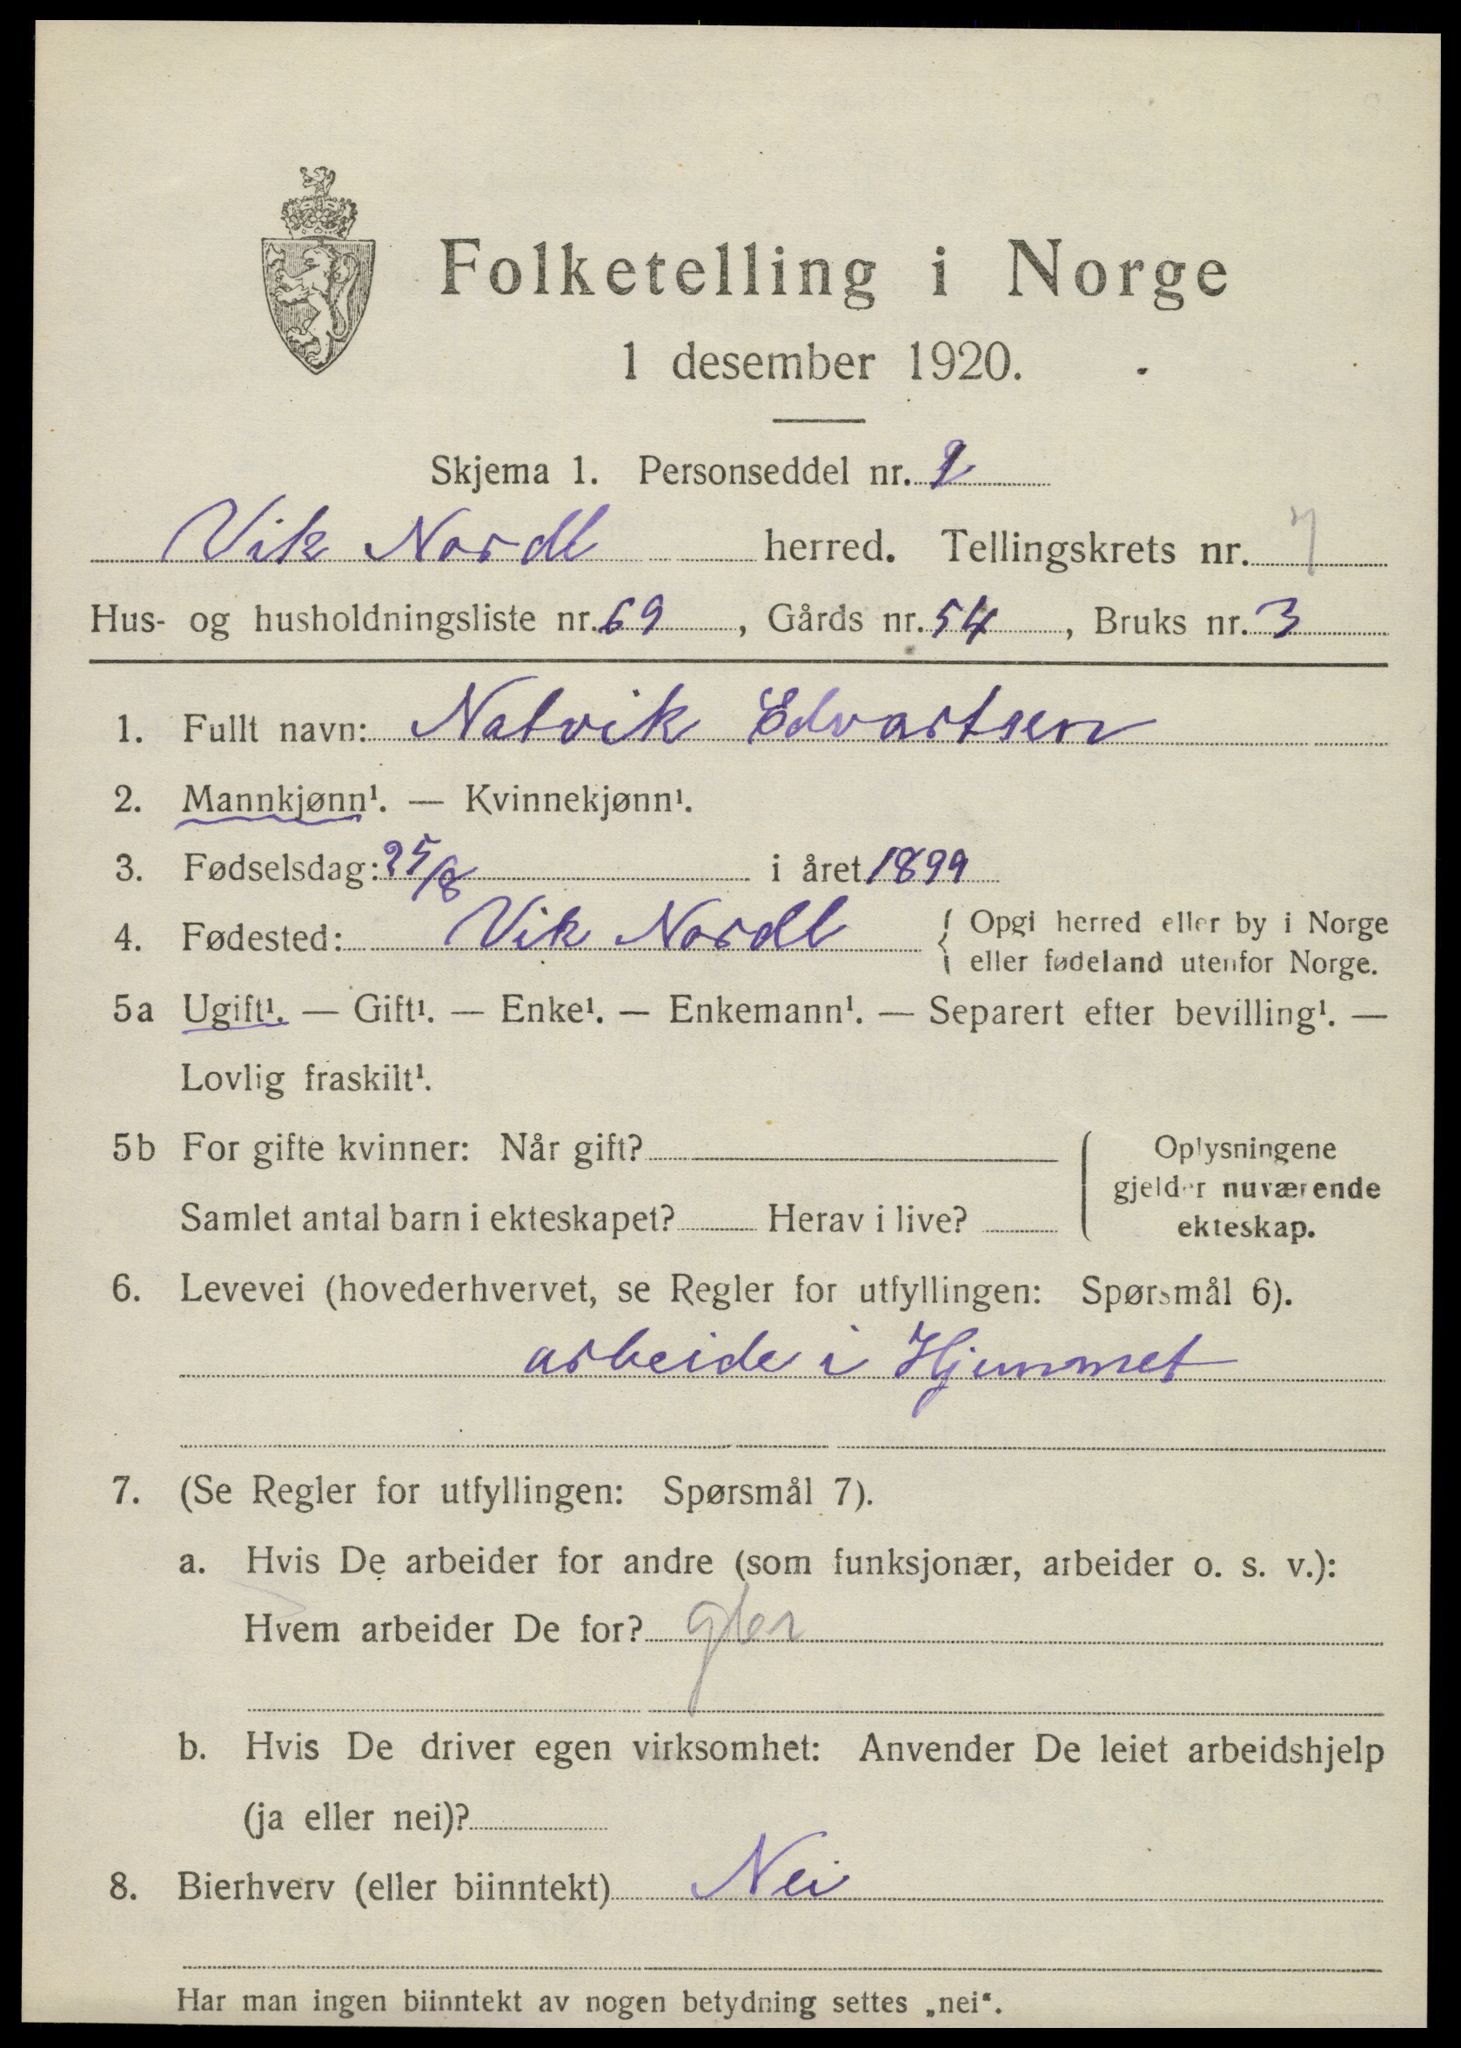 Folketelling i Norge
1 desember 1920.
Skjema 1. Personseddel nr. 2
Vik Nordl herred. Tellingskrets nr. 7
Hus- og husholdningsliste nr. 69, Gårds nr. 54, Bruks nr. 3
1. Fullt navn: Natvik Edvartsen
2. Mannkjønn¹. — Kvinnekjønn¹.
3. Fødselsdag: 25/8 i året 1899
4. Fødested: Vik Nordl { Opgi herred eller by i Norge
eller fødeland utenfor Norge.
5a Ugift¹. — Gift¹. — Enke¹. — Enkemann¹. — Separert efter bevilling¹. —
Lovlig fraskilt¹.
5b For gifte kvinner: Når gift?
Samlet antal barn i ekteskapet? Herav i live?
Oplysningene
gjelder nuværende
ekteskap.
6. Levevei (hovederhvervet, se Regler for utfyllingen: Spørsmål 6).
arbeide i Hjemmet
7. (Se Regler for utfyllingen: Spørsmål 7).
a. Hvis De arbeider for andre (som funksjonær, arbeider o. s. v.):
Hvem arbeider De for?
b. Hvis De driver egen virksomhet: Anvender De leiet arbeidshjelp
(ja eller nei)?
8. Bierhverv (eller biinntekt) Nei
Har man ingen biinntekt av nogen betydning settes „nei“.